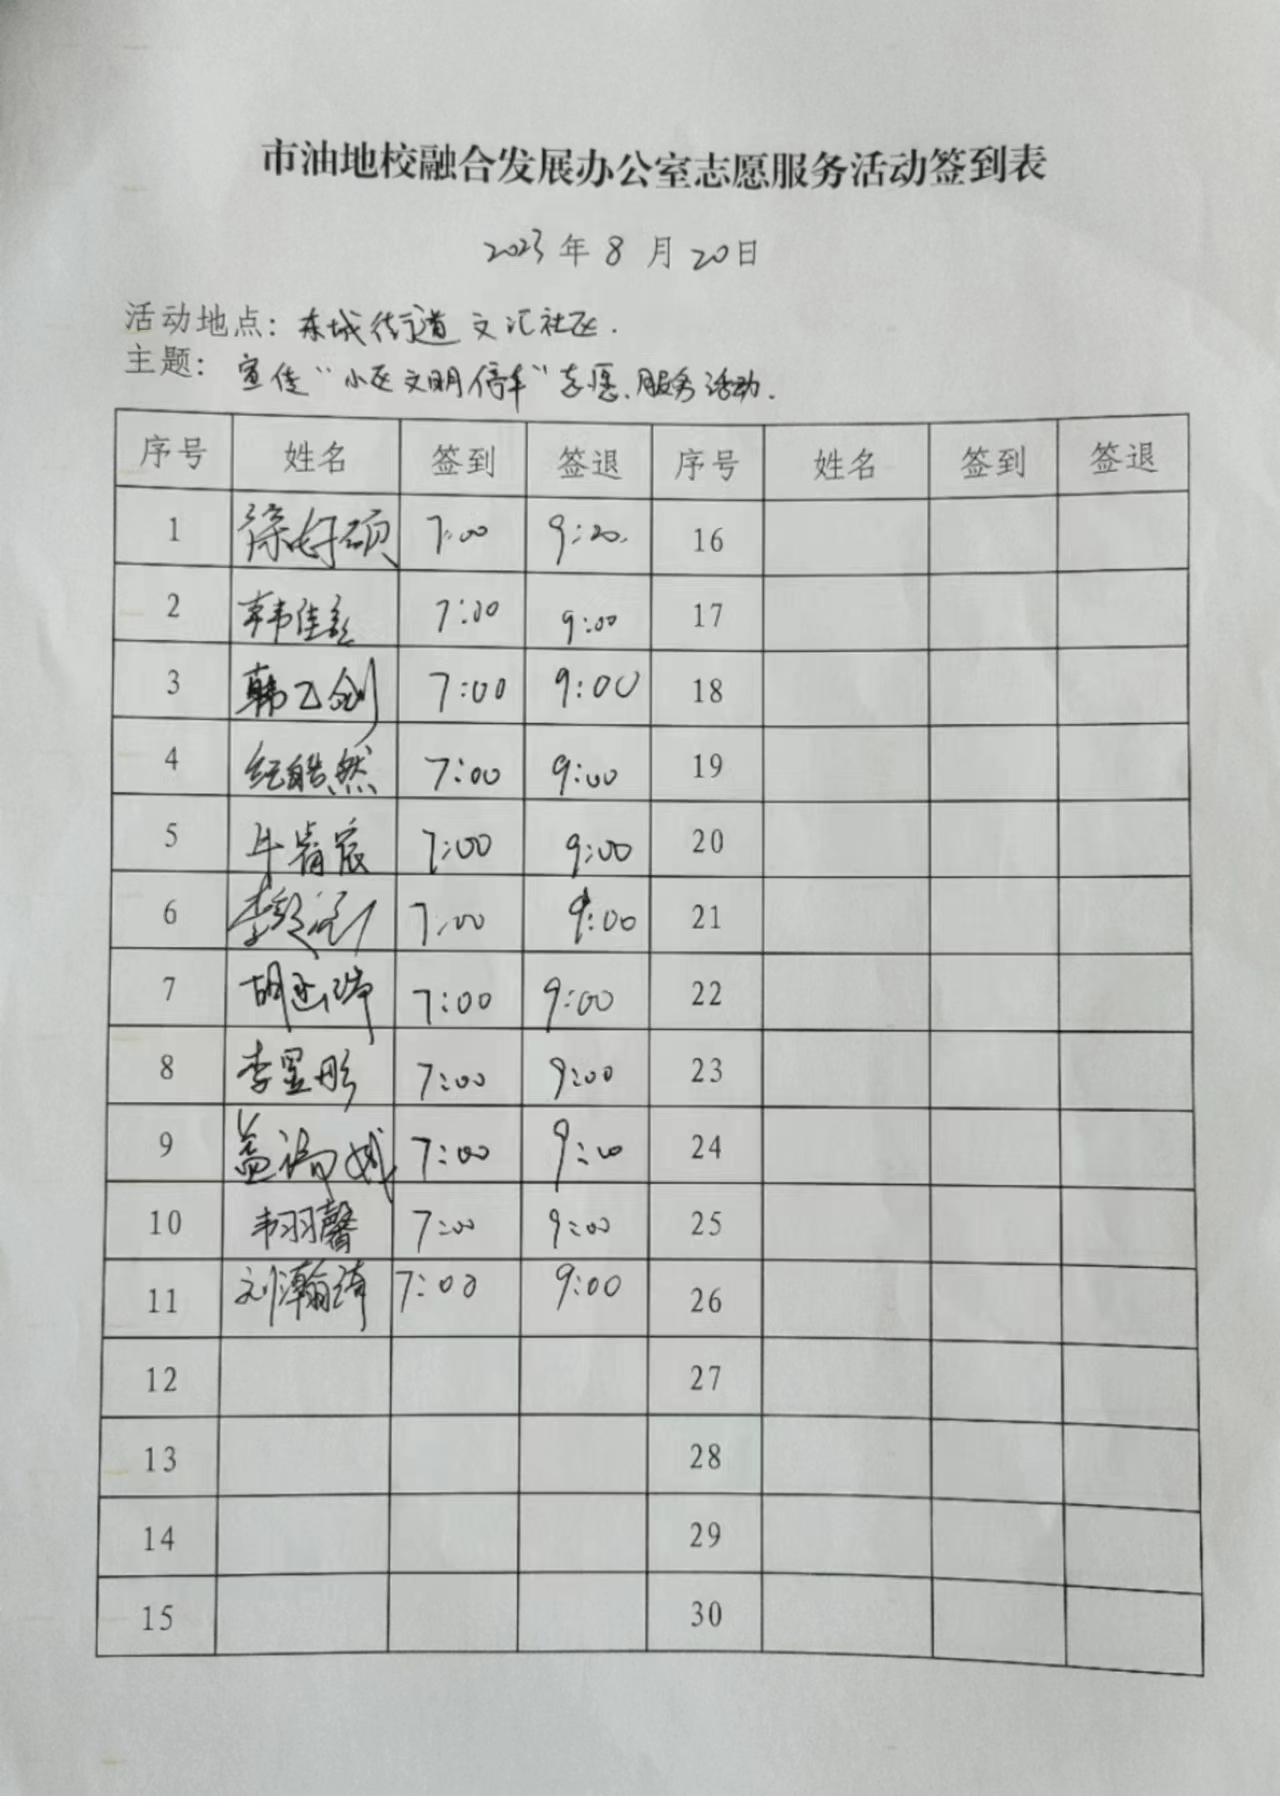 市油地校融合发展办公室志愿服务活动签到表
2023年8月20日
活动地点：东城街道文汇社区.
主题：宣传"小区文明停车"志愿服务活动.
序号 姓名 签到 签退 序号 姓名 签到 签退
1 徐好硕 7:00 9:20. 16
2 韩佳 7:00 9:00 17
3 韩飞剑 7:00 9:00 18
4 纪皓然 7:00 9:00 19
5 牛宸 7:00 9:00 20
6 李 7:00 9:00 21
7 胡瑞 7:00 9:00 22
8 李昱彤 7:00 9:00 23
9 盖 7:00 9:00 24
10 韦羽馨 7:00 9:00 25
11 刘瀚琦 7:00 9:00 26
12 27
13 28
14 29
15 30